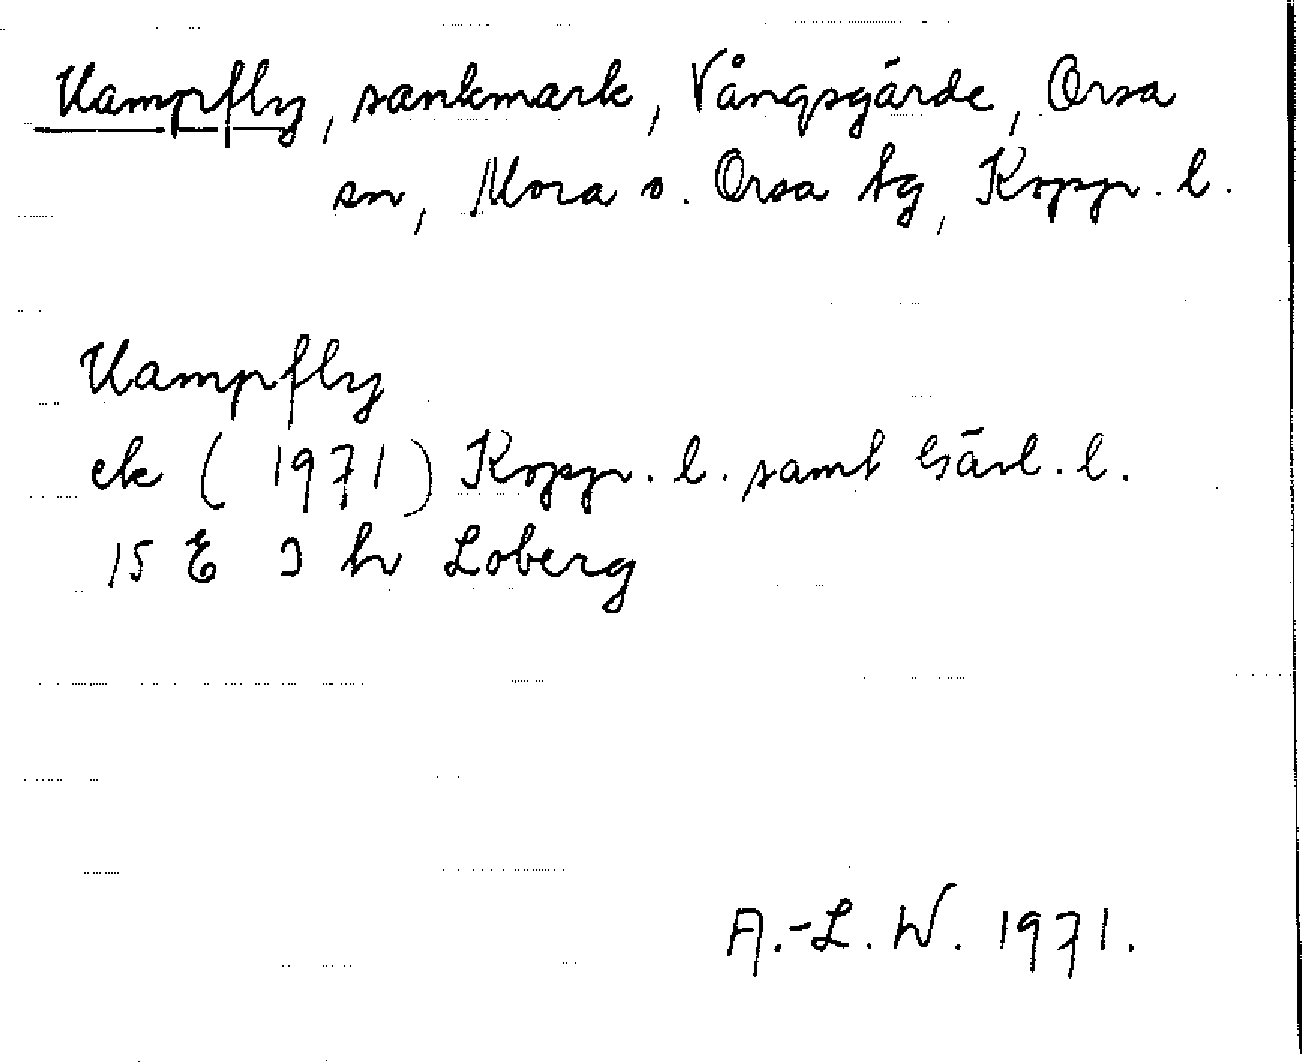 Hampfly, sankmark, Vångsgärde, Orsa
sn, Mora o. Orsa tg, Kopp. l.
Hampfly
ek (1971) Kopp. l. samt Gävl. l.
15 E h Loberg
A.-L. W. 1971.